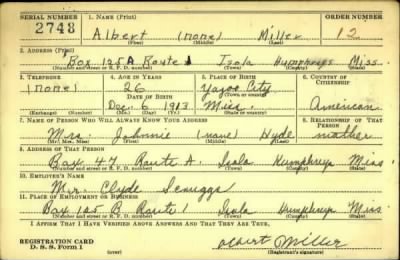 SERIAL NUMBER 1. NAME (Print) ORDER NUMBER
2748 Albert (none) Miller 12
(First) (Middle) (Last)
2. ADDRESS (Print)
Box 125A Route 1 Isola Humphreys Miss.
(Number and street or R. F. D. number) (Town) (County) (State)
3. TELEPHONE 4. AGE IN YEARS 5. PLACE OF BIRTH 6. COUNTRY OF CITIZENSHIP
(none) 26 Yazoo City
DATE OF BIRTH (Town or county)
Dec. 6 1913 Miss. American
(Exchange) (Number) (Mo.) (Day) (Yr.) (State or country)
7. NAME OF PERSON WHO WILL ALWAYS KNOW YOUR ADDRESS 8. RELATIONSHIP OF THAT PERSON
Mrs. Johnnie (none) Hyde mother
(Mr., Mrs., Miss) (First) (Middle) (Last)
9. ADDRESS OF THAT PERSON
Box 47 Route A. Isola Humphreys Miss
(Number and street or R. F. D. number) (Town) (County) (State)
10. EMPLOYER'S NAME
Mr. Clyde Scruggs
11. PLACE OF EMPLOYMENT OR BUSINESS
Box 125 B Route 1 Isola Humphreys Miss.
(Number and street or R. F. D. number) (Town) (County) (State)
I AFFIRM THAT I HAVE VERIFIED ABOVE ANSWERS AND THAT THEY ARE TRUE.
REGISTRATION CARD
D. S. S. Form 1 Albert Miller
(Registrant's signature)